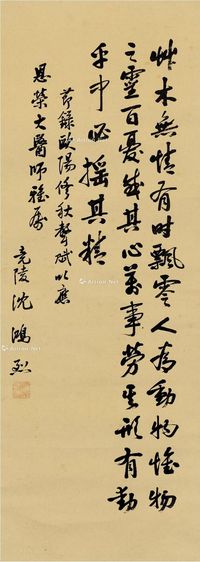 草木無情有时飄零人為動物惟物
之靈百憂感其心萬事勞其形有動
乎中必摇其精
节録歐陽修秋聲賦以應
恩榮大醫師雅屬
竟陵沈鴻烈